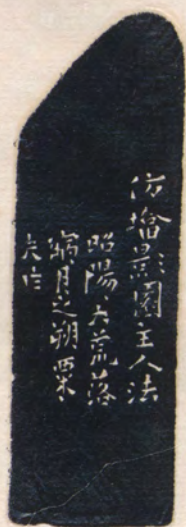 仿墖影園主人法
昭陽大荒落
寎月之朔粟
夫作